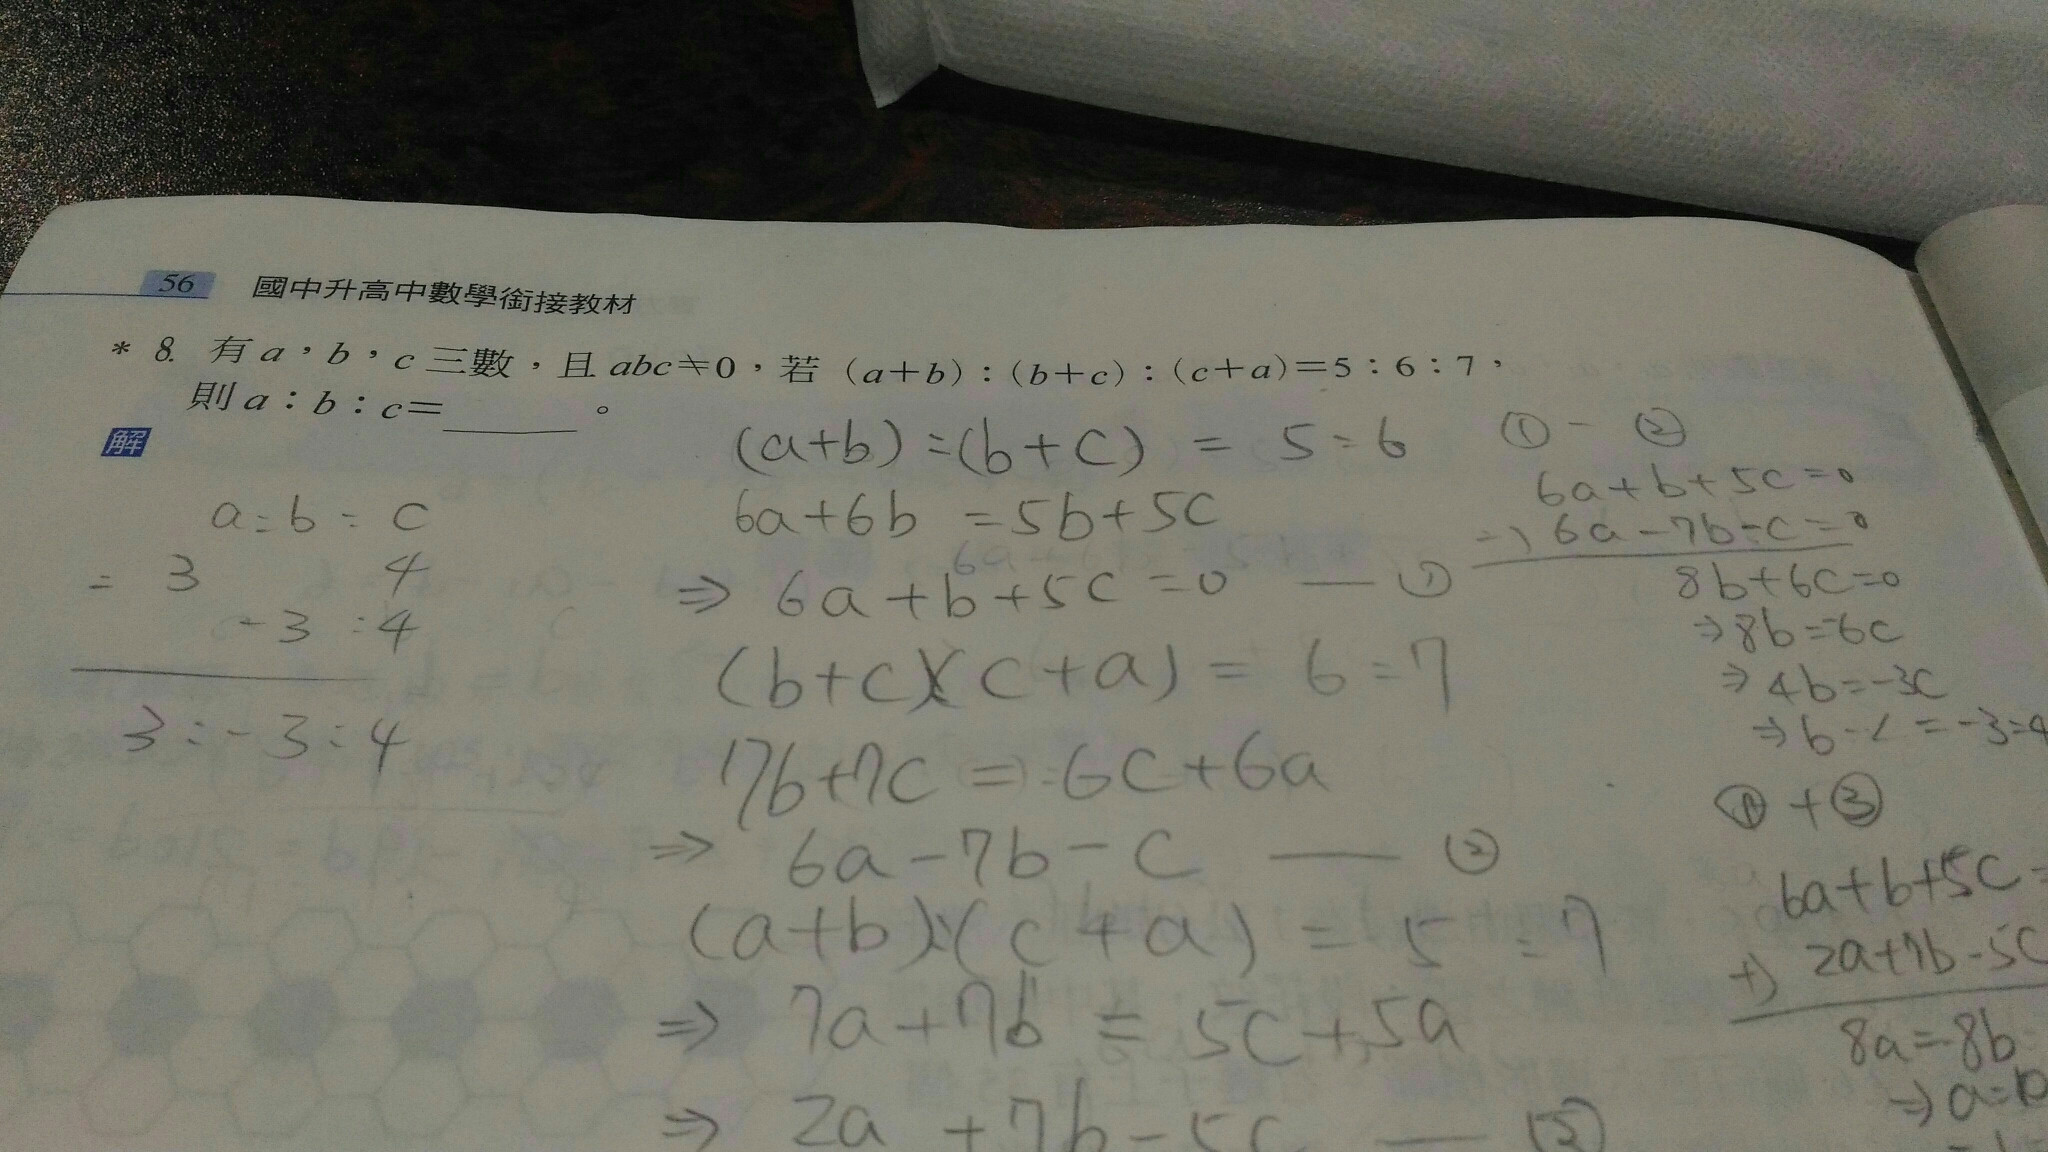 56 國中升高中數學銜接教材
* 8. 有 a，b，c 三數，且 abc≠0，若 (a+b)：(b+c)：(c+a)=5：6：7，
則 a：b：c=______。
解
a:b:c
= 3 4
-3 :4
3:-3:4
(a+b):(b+c) = 5:6
6a+6b =5b+5c
⇒ 6a+b+5c=0 — ①
(b+c):(c+a) = 6:7
7b+7c = 6c+6a
⇒ 6a-7b-c — ②
(a+b):(c+a) = 5:7
⇒ 7a+7b = 5c+5a
⇒ 2a+7b-5c — ③
① - ②
6a+b+5c=0
-) 6a-7b-c=0
8b+6c=0
⇒ 8b=-6c
⇒ 4b=-3c
⇒ b:c = -3:4
① + ③
6a+b+5c=
+) 2a+7b-5c
8a=-8b
⇒ a=